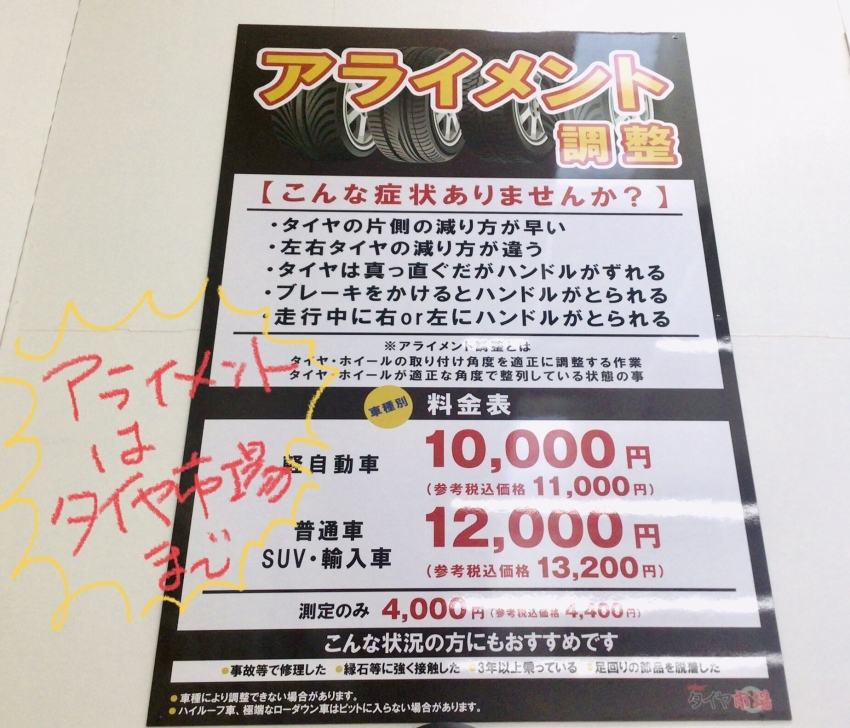 アライメント
調整
【こんな症状ありませんか？】
・タイヤの片側の減り方が早い
・左右タイヤの減り方が違う
・タイヤは真っ直ぐだがハンドルがずれる
・ブレーキをかけるとハンドルがとられる
・走行中に右or左にハンドルがとられる
※アライメント調整とは
タイヤ・ホイールの取り付け角度を適正に調整する作業
タイヤ・ホイールが適正な角度で整列している状態の事
アライメント
は
タイヤ市場
まで
車種別 料金表
軽自動車 10,000円
（参考税込価格 11,000円）
普通車
SUV・輸入車
12,000円
（参考税込価格 13,200円）
測定のみ 4,000円（参考税込価格 4,400円）
こんな状況の方にもおすすめです
●事故等で修理した ●縁石等に強く接触した ●3年以上乗っている ●足回りの部品を脱着した
●車種により調整できない場合があります。
●ハイルーフ車、極端なローダウン車はピットに入らない場合があります。
タイヤ市場